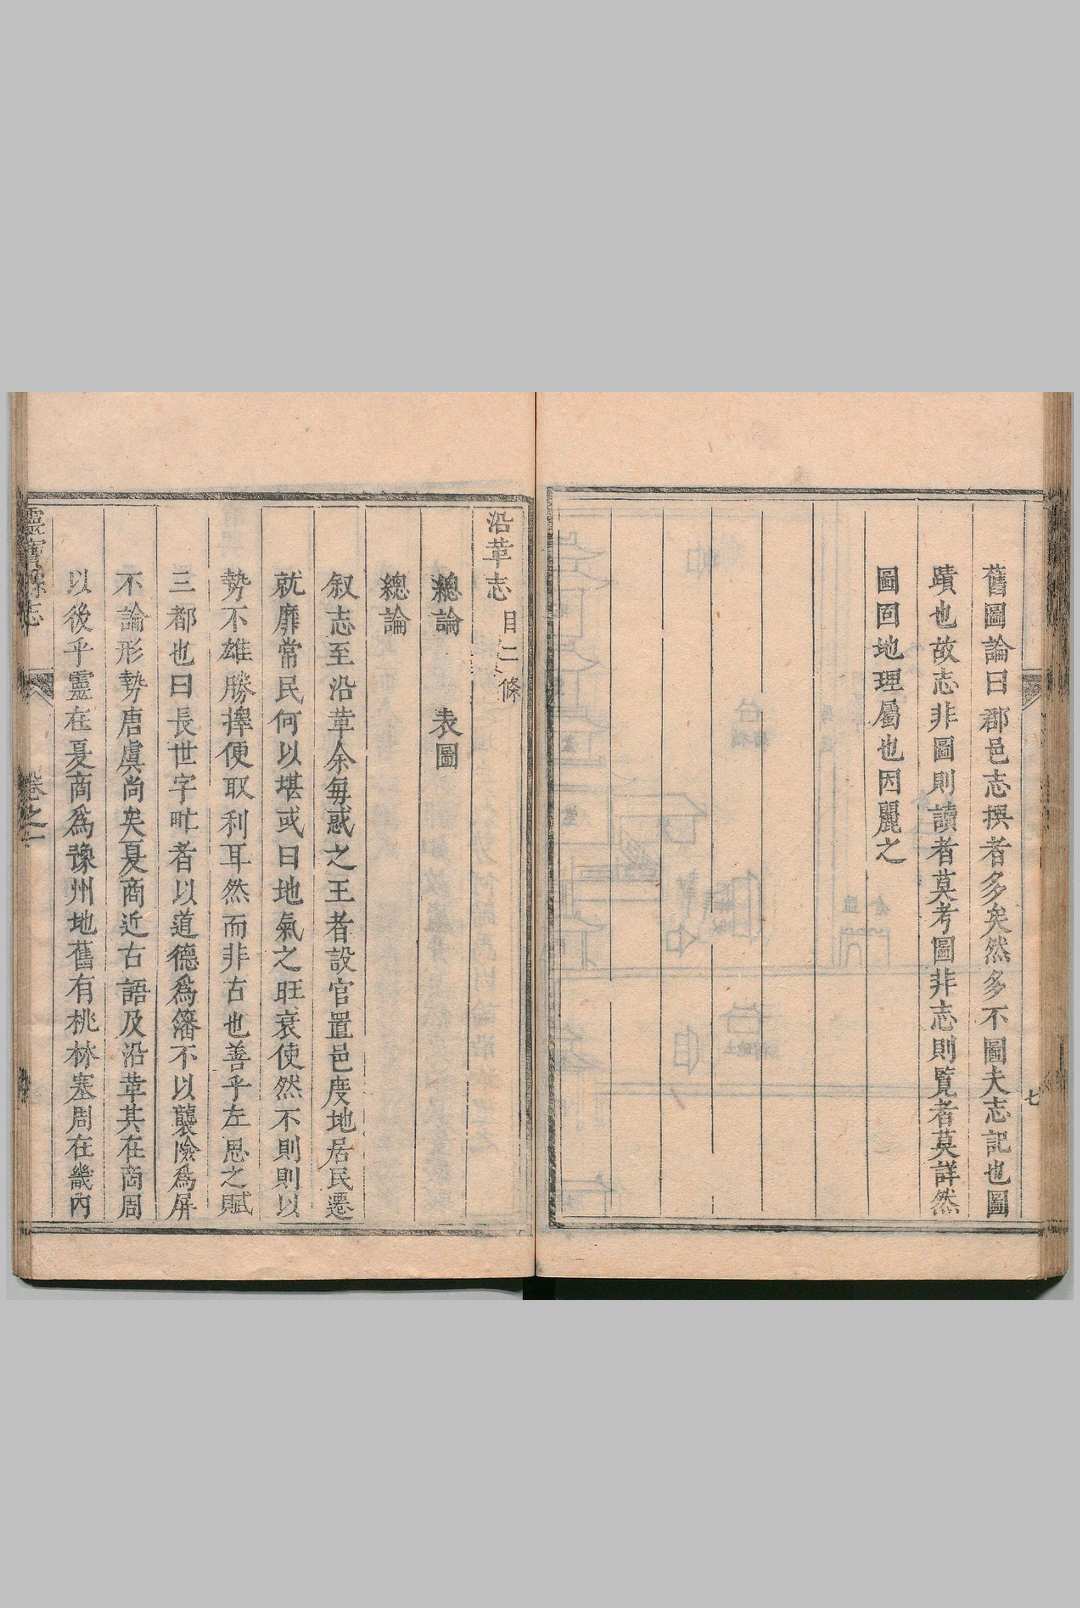 舊圖論曰郡邑志撰者多矣然多不圖夫志記也圖
蹟也故志非圖則讀者莫考圖非志則覽者莫詳然
圖固地理屬也因麗之
七
沿革志 目二條
總論 表圖
總論
叙志至沿革余每惑之王者設官置邑度地居民遷
就靡常民何以堪或曰地氣之旺衰使然不則則以
勢不雄勝擇便取利耳然而非古也善乎左思之賦
三都也曰長世字甿者以道德爲籓不以襲險爲屏
不論形勢唐虞尚矣夏商近古語及沿革其在商周
以後乎靈在夏商爲豫州地舊有桃林塞周在畿内
靈寶縣志
卷之